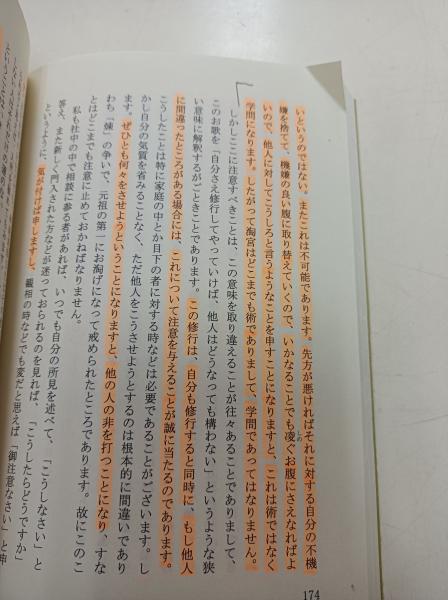 いというのではない。またこれは不可能であります。先方が悪ければそれに対する自分の不機
嫌を捨てて、機嫌の良い腹に取り替えていくので、いかなることでも凌ぐお腹にさえなればよ
いので、他人に対してこうしろと言うようなことを申すことになりますと、これは術ではなく
学問になります。したがって淘宮はどこまでも術でありまして、学問であってはなりません。
しかしここに注意すべきことは、この意味を取り違えることが往々あることでありまして、
このお歌を「自分さえ修行してやっていけば、他人はどうなっても構わない」というような狭
い意味に解釈するがごときことであります。この修行は、自分も修行すると同時に、もし他人
に間違ったところがある場合には、これについて注意を与えることが誠に当たるのであります。
こうしたことは特に家庭の中とか目下の者に対する時などは必要であることがございます。し
かし自分の気質を省みることなく、ただ他人をこうさせようとするのは根本的に間違いであり
ます。ぜひとも何々をさせようということになりますと、他の人の非を打つことになり、すな
わち「煉」の争いで、元祖の第一にお淘げになって戒められたところであります。故にこのこ
とはどこまでも注意に止めておかねばなりません。
私も社中の中で相談に参る者があれば、いつでも自分の所見を述べて、「こうしなさい」と
答え、また新しく門入された方などが迷っておられるのを見れば、「こうしたらどうですか」
というように、気が付けば申しますし、観相の時などでも変だと思えば「御注意なさい」と申
174